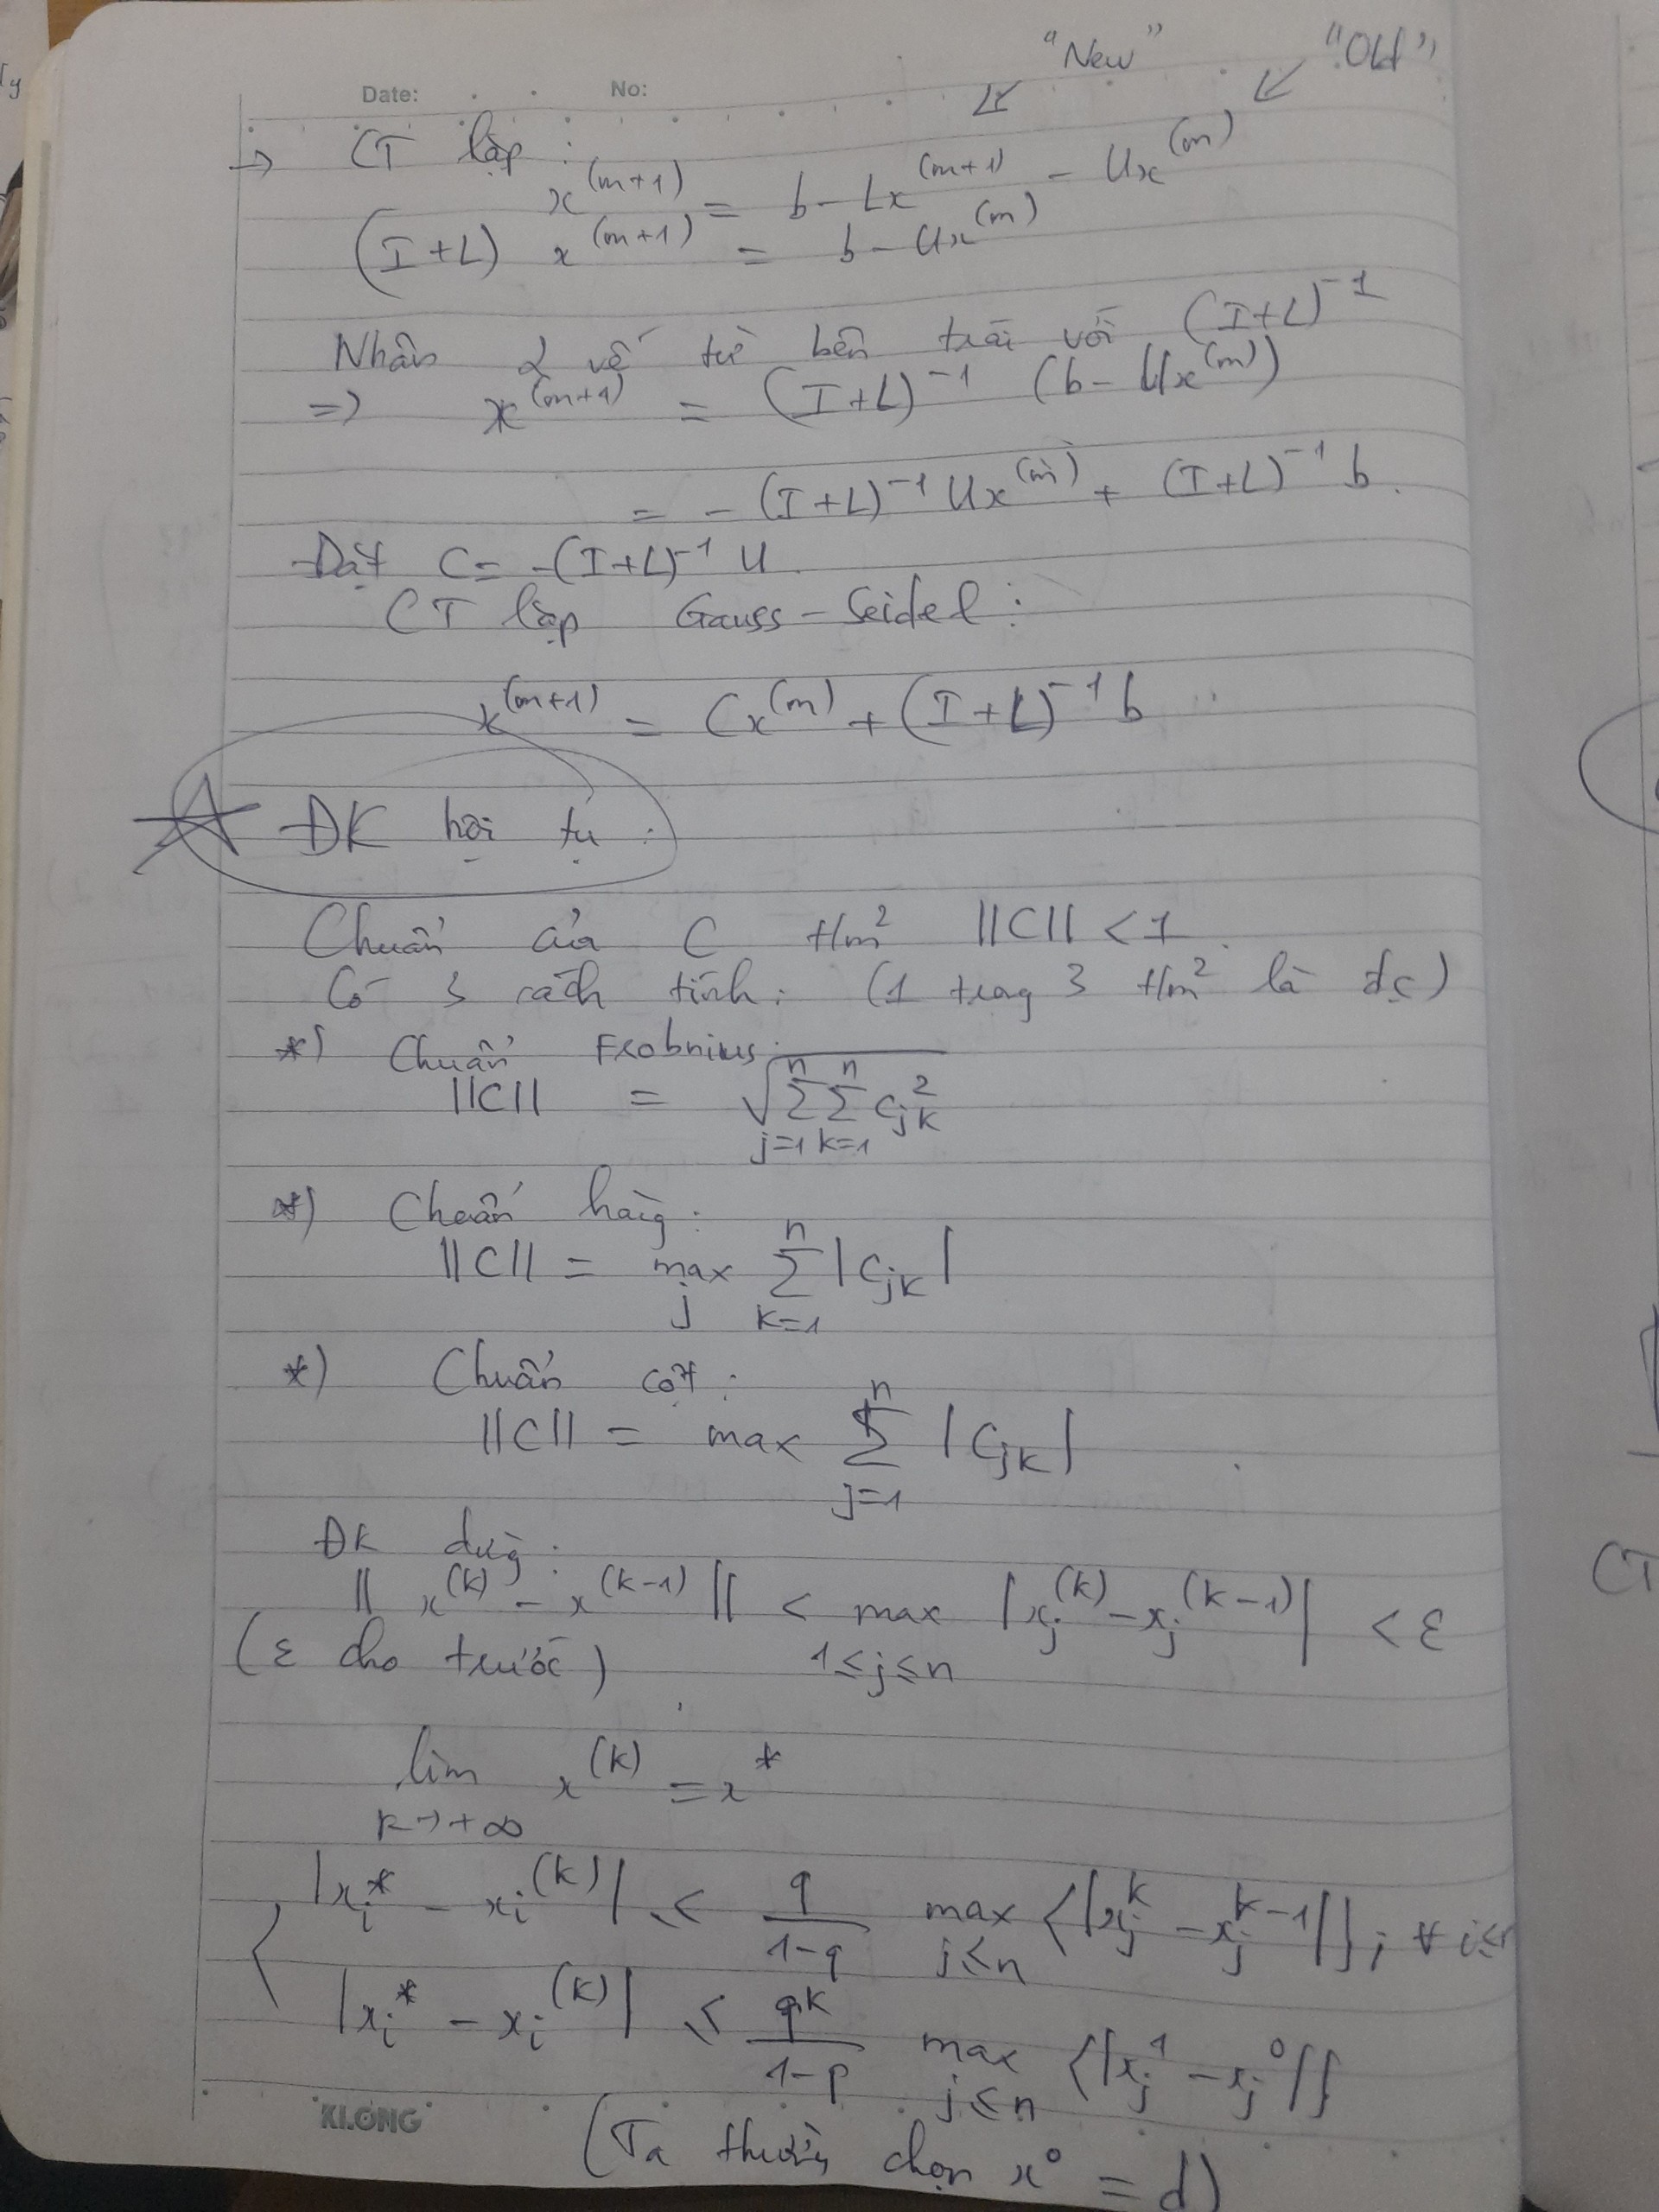 "New" "Old"
Date: No:
→ CT lặp :
x^(m+1) = b - Lx^(m+1) - Ux^(m)
(I+L) x^(m+1) = b - Ux^(m)
Nhân 2 vế từ bên trái với (I+L)^-1
=> x^(m+1) = (I+L)^-1 (b - Ux^(m))
= - (I+L)^-1 Ux^(m) + (I+L)^-1 b.
Đặt C = -(I+L)^-1 U.
CT lặp Gauss - Seidel :
x^(m+1) = Cx^(m) + (I+L)^-1 b
ĐK hội tụ :
Chuẩn của C t/m² ||C|| < 1.
Có 3 cách tính: (1 trog 3 t/m² là đc)
*) Chuẩn Frobnius:
||C|| = √(∑_{j=1}^{n} ∑_{k=1}^{n} c_{jk}^2)
*) Chuẩn hàng:
||C|| = max_j ∑_{k=1}^{n} |c_{jk}|
*) Chuẩn cột :
||C|| = max ∑_{j=1}^{n} |c_{jk}|
ĐK dừng:
|| x^(k) - x^(k-1) || < max_{1≤j≤n} |x_j^(k) - x_j^(k-1)| < ε
(ε cho trước)
lim_{k→+∞} x^(k) = x^*
{ |x_i^* - x_i^(k)| ≤ q/(1-q) max_{j≤n} {|x_j^k - x_j^{k-1}|} ; ∀ i≤n
|x_i^* - x_i^(k)| ≤ q^k/(1-p) max_{j≤n} {|x_j^1 - x_j^0|}
KLONG
(Ta thường chọn x^0 = d)
CT